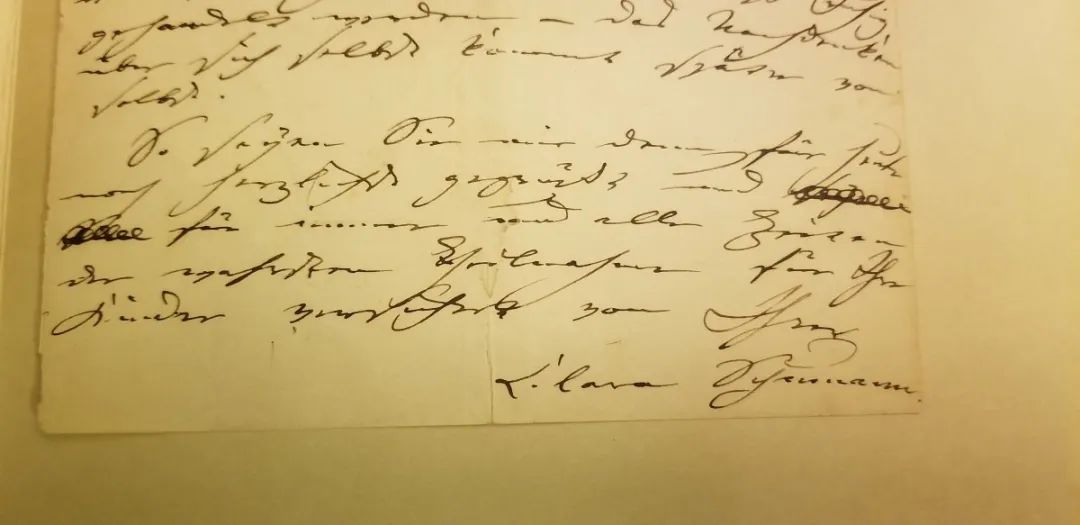 gehandelt werden – das Nachdenken
über sich selbst kommt später von
selbst.
So seyen Sie mir denn für heute
noch herzlichst gegrüßt und
für immer und alle Zeiten
der wahrsten Theilnahme für Ihre
Kinder versichert von Ihrer
Clara Schumann.